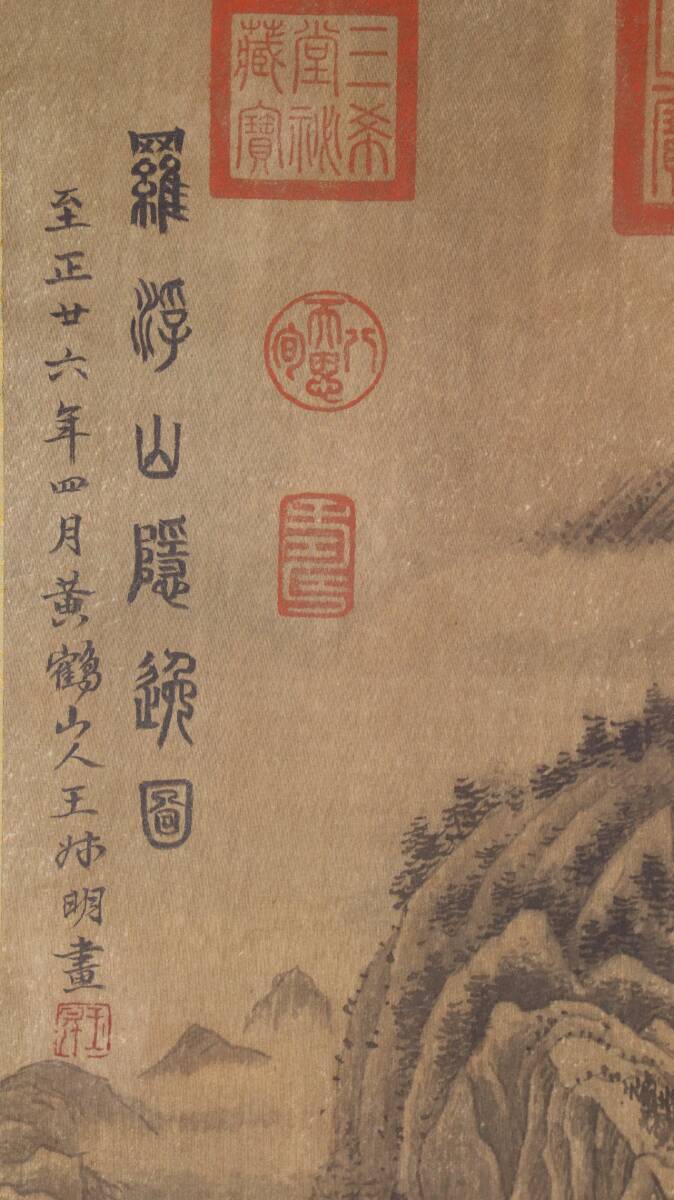 三希
堂祕
藏寶
羅浮山隱逸圖
至正廿六年四月黃鶴山人王叔明畫